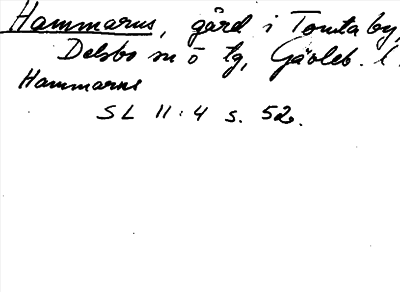 Hammarns, gård i Tomta by,
Delsbo sn ö tg, Gävleb. l.
Hammarns
SL 11:4 s. 52.